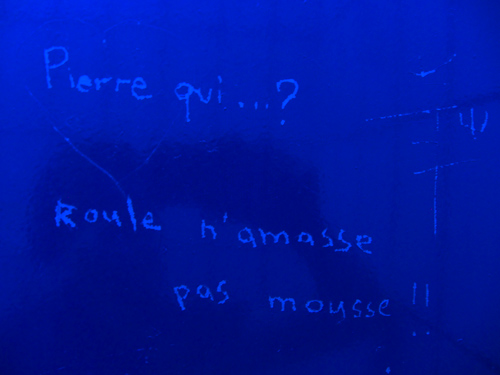 Pierre qui...?
Roule n'amasse
pas mousse !!